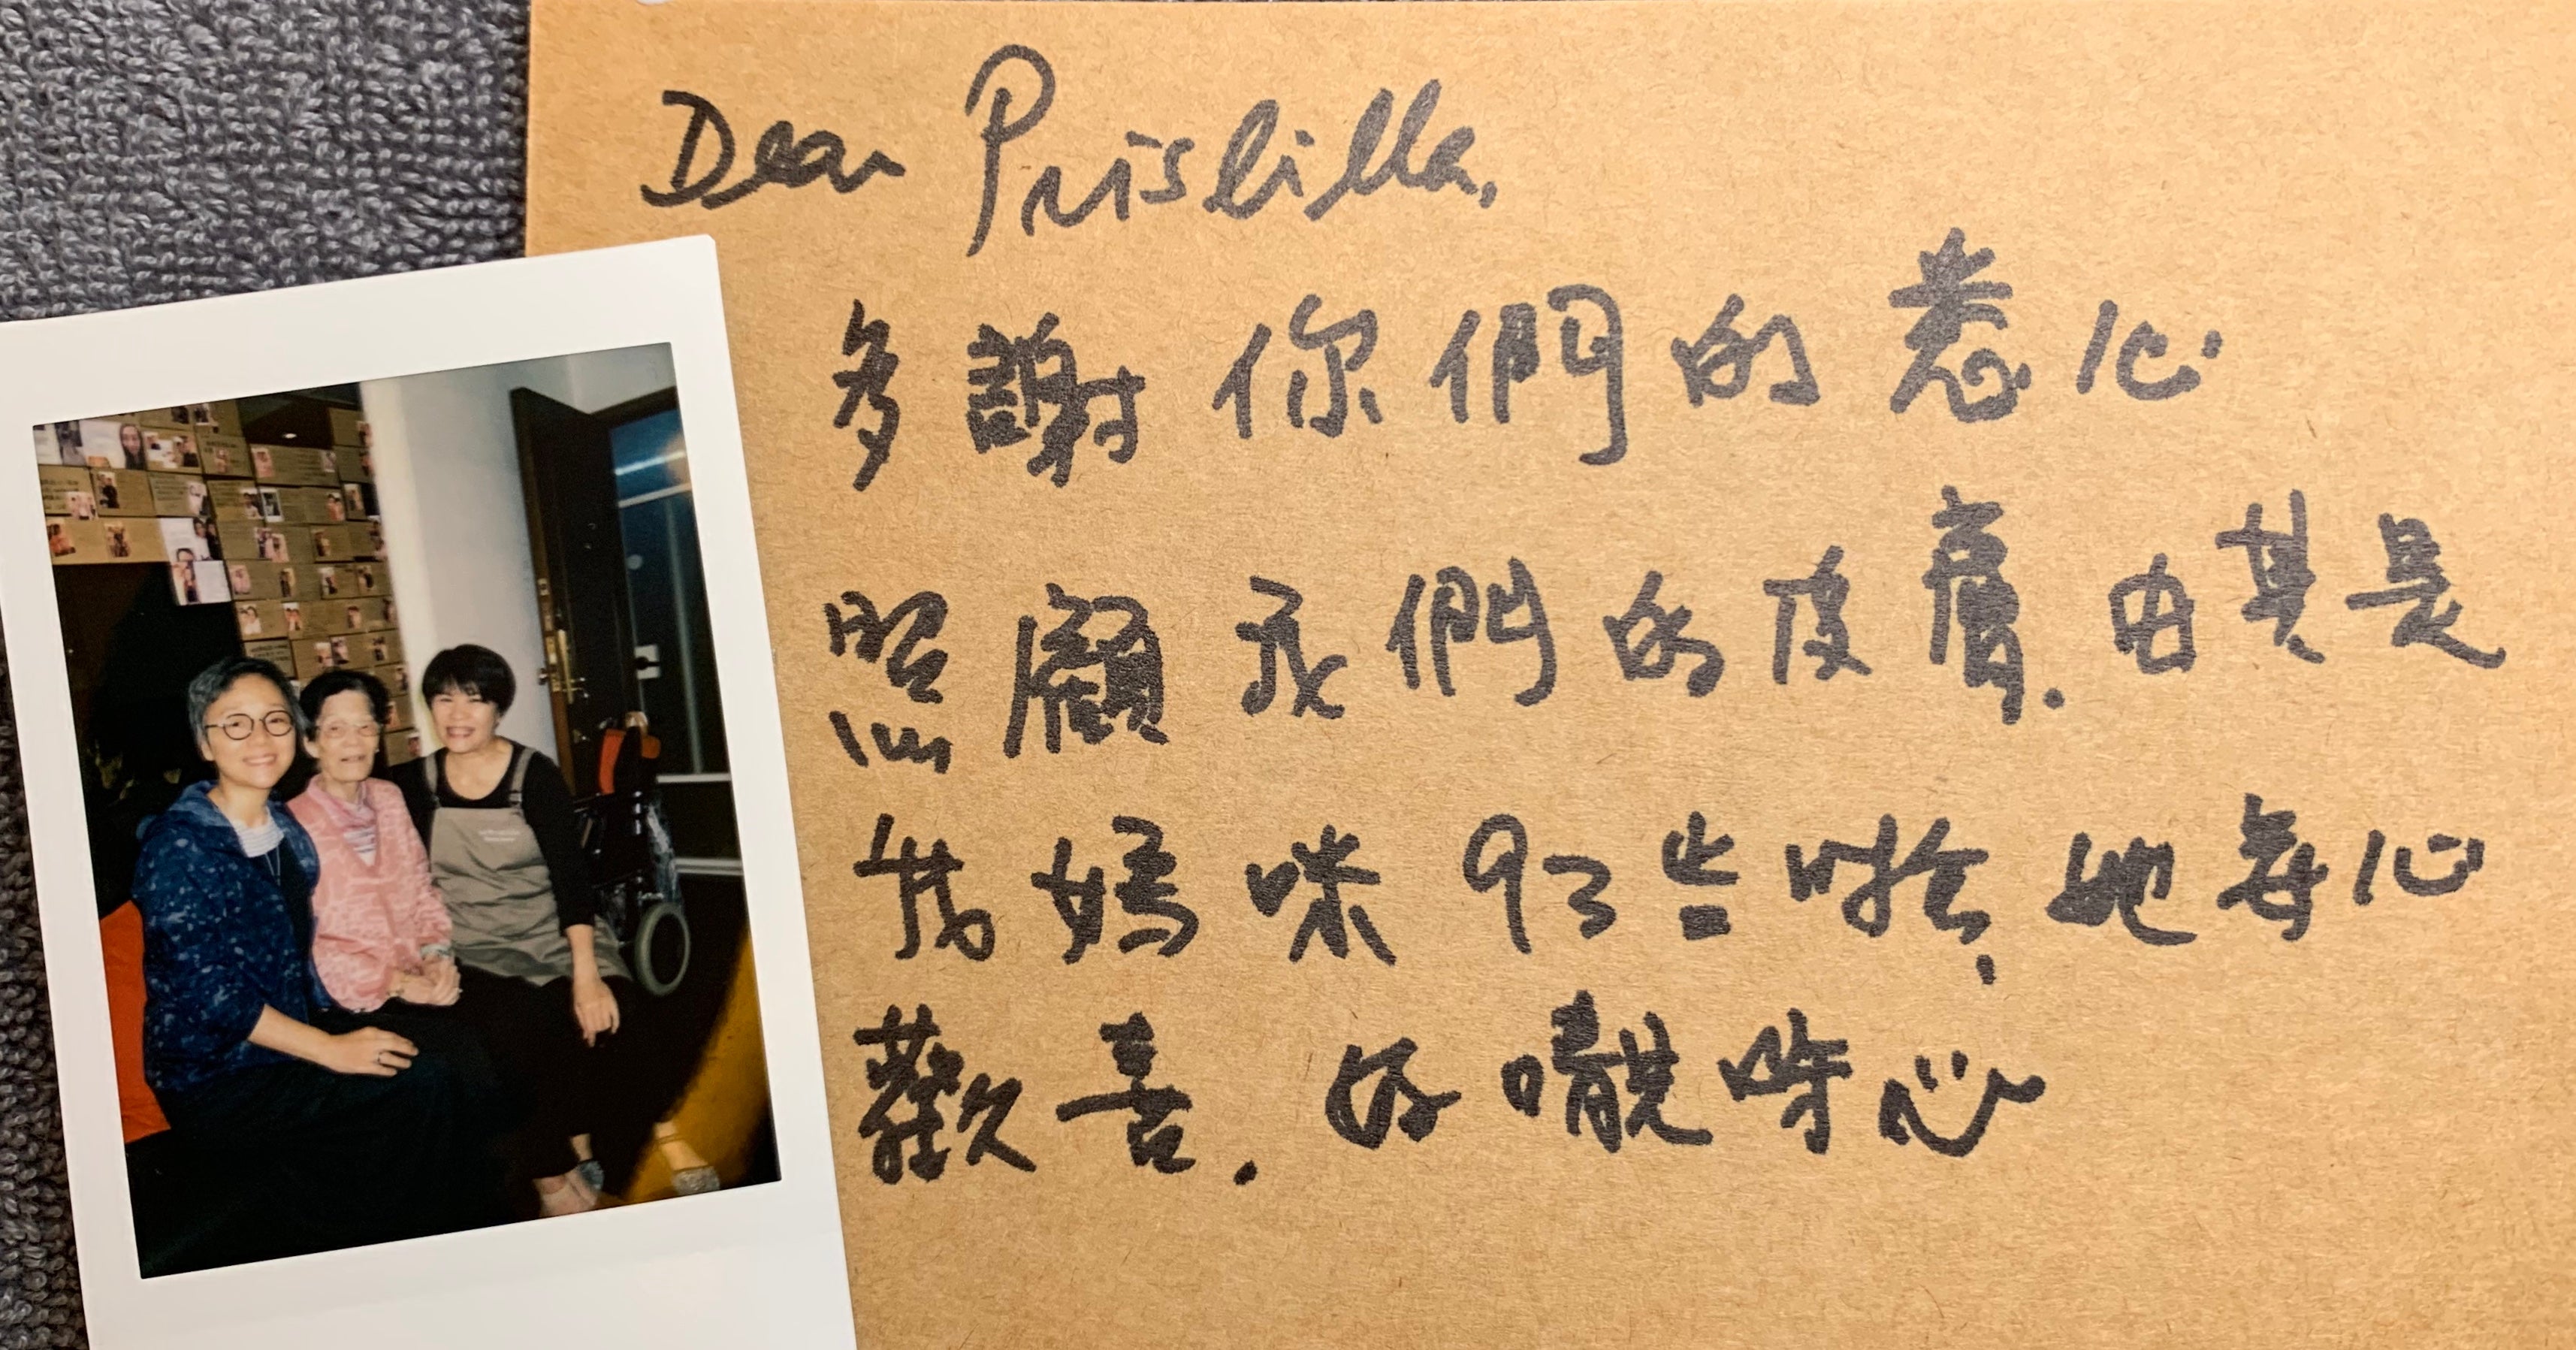 Dear Priscilla,
多謝你們的悉心
照顧我們的皮膚. 由其是
我媽咪 93歲 她 心
歡喜. 好 心